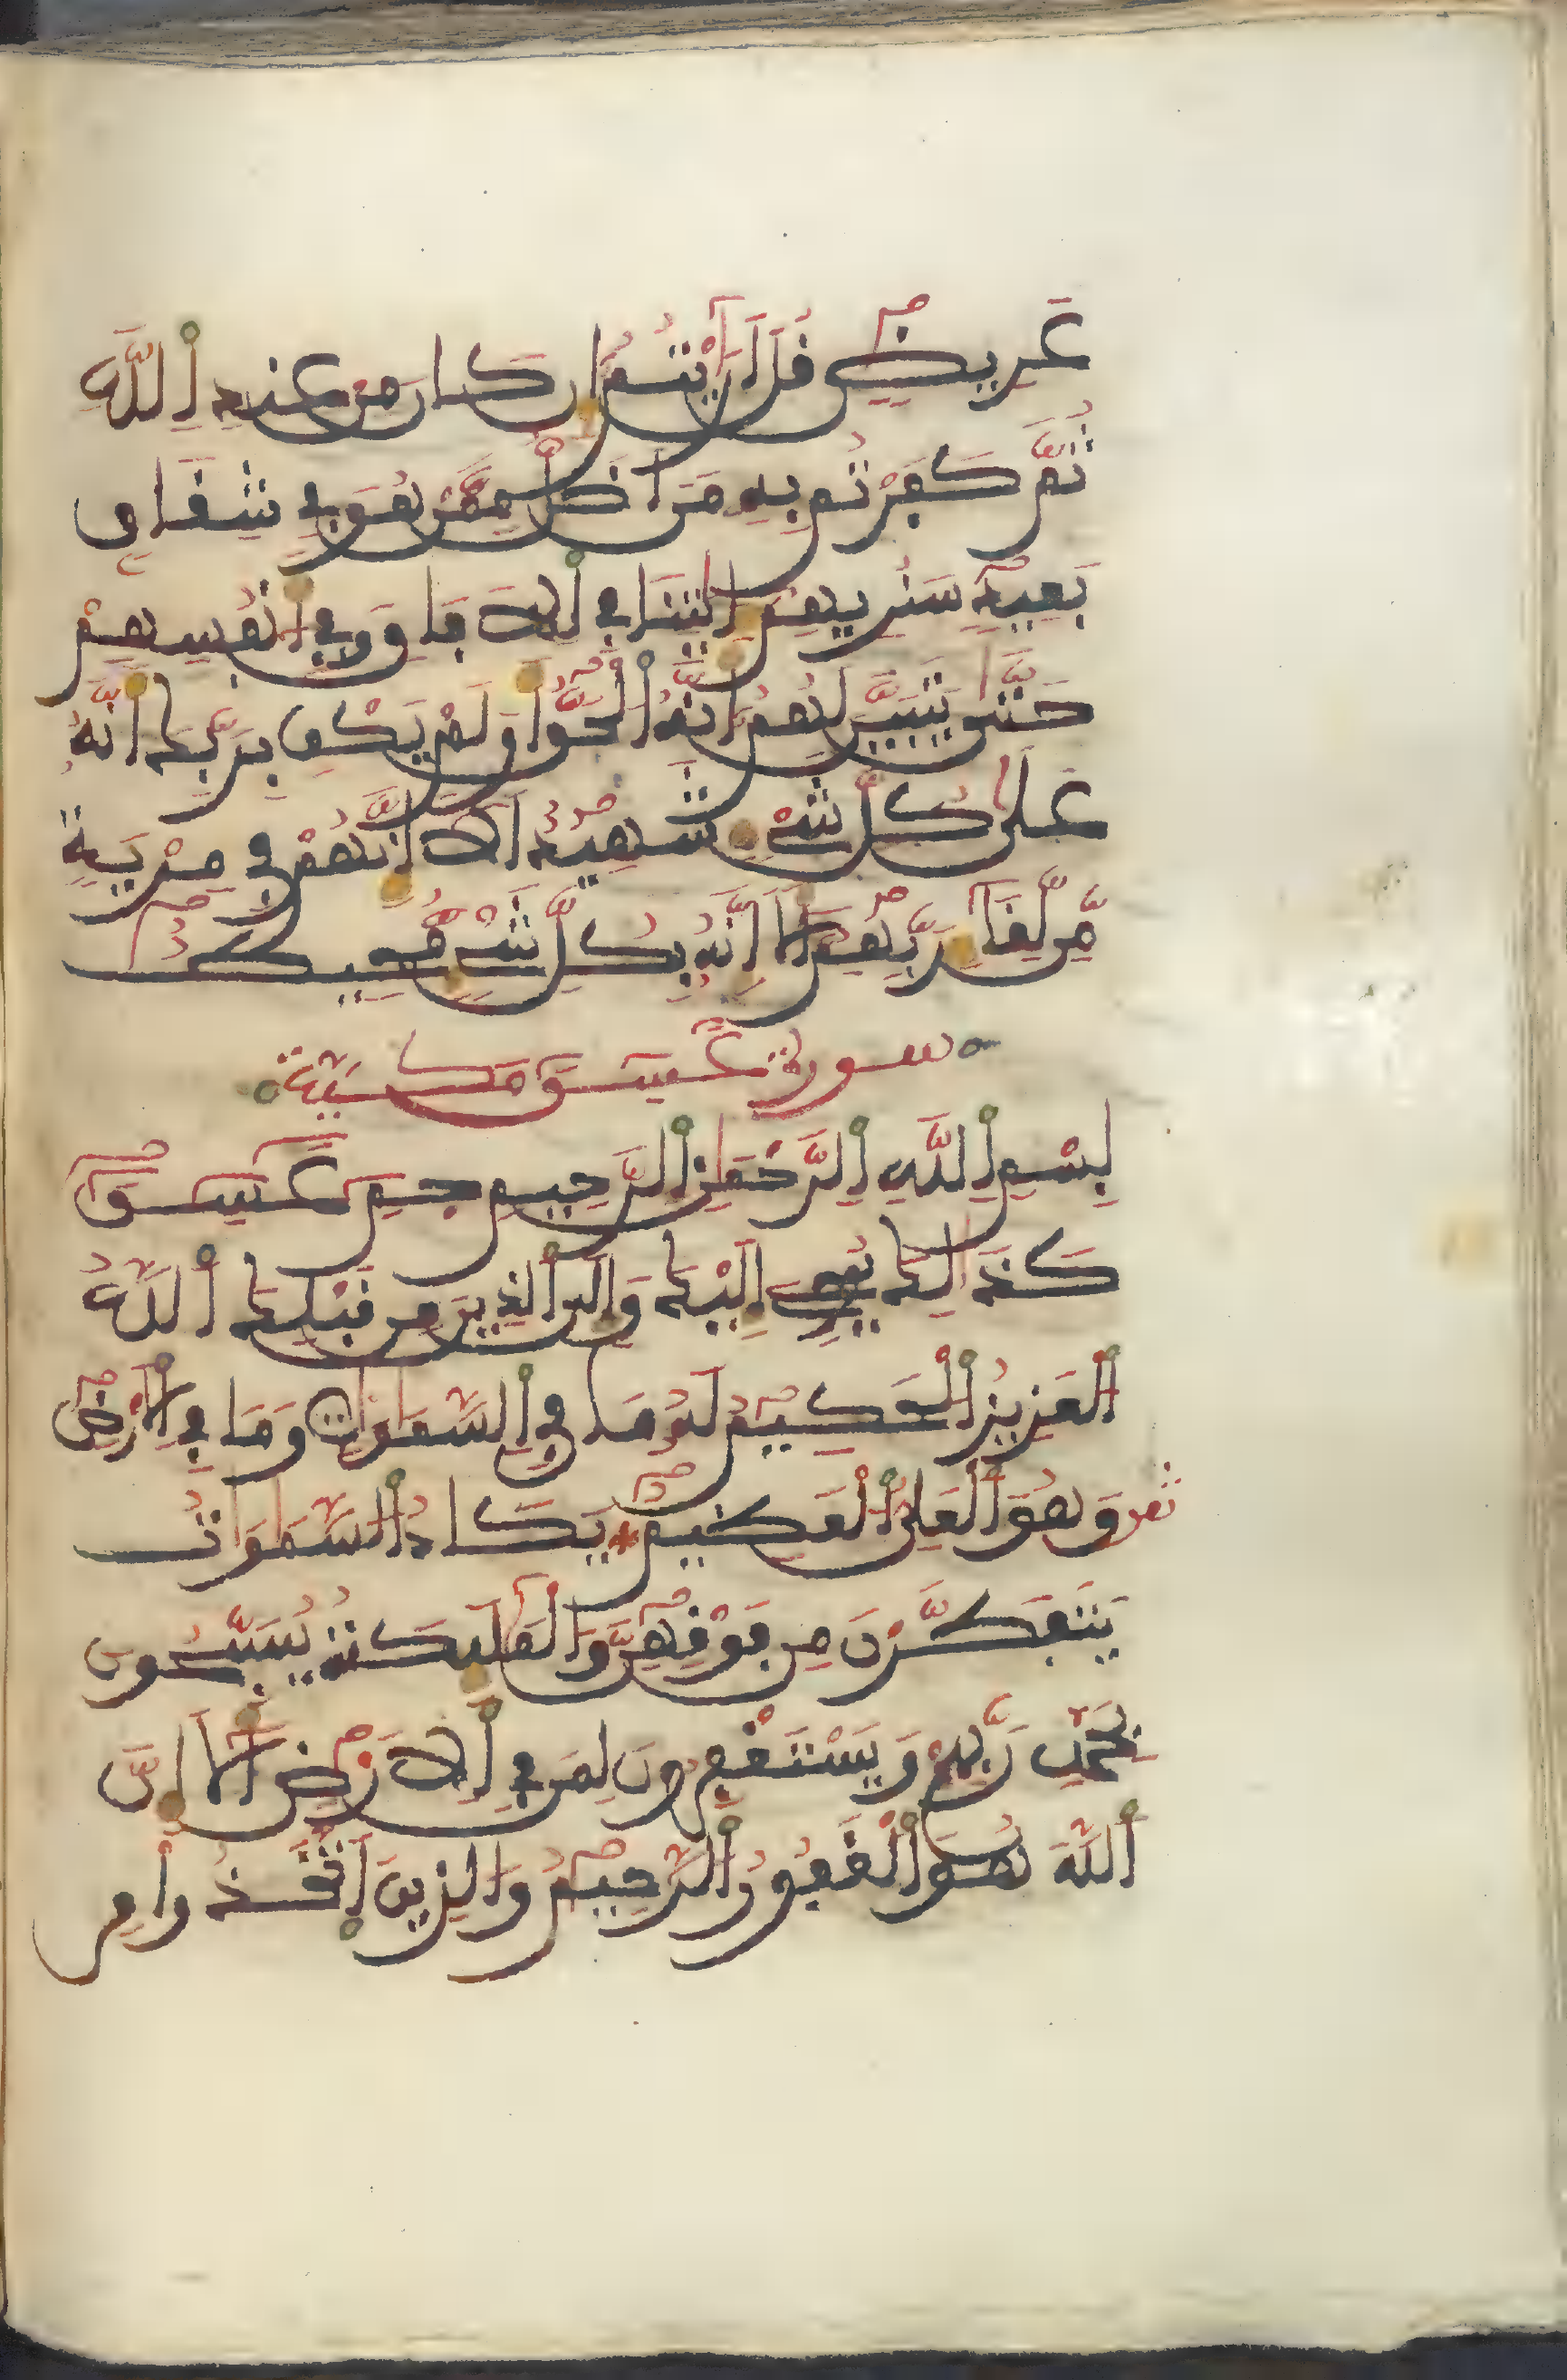 عَرِيضٍ قُلَ اَرَٰيْتُمُ إِن كَانَ مِنْ عِندِ اِ۬للَّهِ
ثُمَّ كَفَرْتُم بِهِۦ مَنَ اَضَلُّ مِمَّنْ هُوَ فِي شِقَاقِۢ
بَعِيدٖ سَنُرِيهِمُۥٓ ءَايَٰتِنَا فِي اِ۬لَافَاقِ وَفِيٓ أَنفُسِهِمْ
حَتَّىٰ يَتَبَيَّنَ لَهُمُۥٓ أَنَّهُ اُ۬لْحَقُّ أَوَلَمْ يَكْفِ بِرَبِّكَ أَنَّهُۥ
عَلَىٰ كُلِّ شَےْءٖ شَهِيدٌ اَلَآ إِنَّهُمْ فِي مِرْيَةٖ
مِّن لِّقَآءِ رَبِّهِمُۥٓ أَلَآ إِنَّهُۥ بِكُلِّ شَےْءٖ مُّحِيطٌ
سورة عٓسٓقٓ مكيّة
بِسْمِ اِ۬للَّهِ اِ۬لرَّحْمَٰنِ اِ۬لرَّحِيمِ حمٓ عٓسٓقٓ
كَذَٰلِكَ يُوحِےٓ إِلَيْكَ وَإِلَى اَ۬لذِينَ مِن قَبْلِكَ اَ۬للَّهُ
اُ۬لْعَزِيزُ اُ۬لْحَكِيمُ لَهُۥ مَا فِي اِ۬لسَّمَٰوَٰتِ وَمَا فِي اِ۬لَارْضِ
وَهُوَ اَ۬لْعَلِيُّ اُ۬لْعَظِيمُ يَكَادُ اُ۬لسَّمَٰوَٰتُ
يَتَفَطَّرْنَ مِن فَوْقِهِنَّ وَالْمَلَٰٓئِكَةُ يُسَبِّحُونَ
بِحَمْدِ رَبِّهِمْ وَيَسْتَغْفِرُونَ لِمَن فِي اِ۬لَارْضِ أَلَآ إِنَّ
اَ۬للَّهَ هُوَ اَ۬لْغَفُورُ اُ۬لرَّحِيمُ وَالذِينَ اَ۪تَّخَذُوا مِن